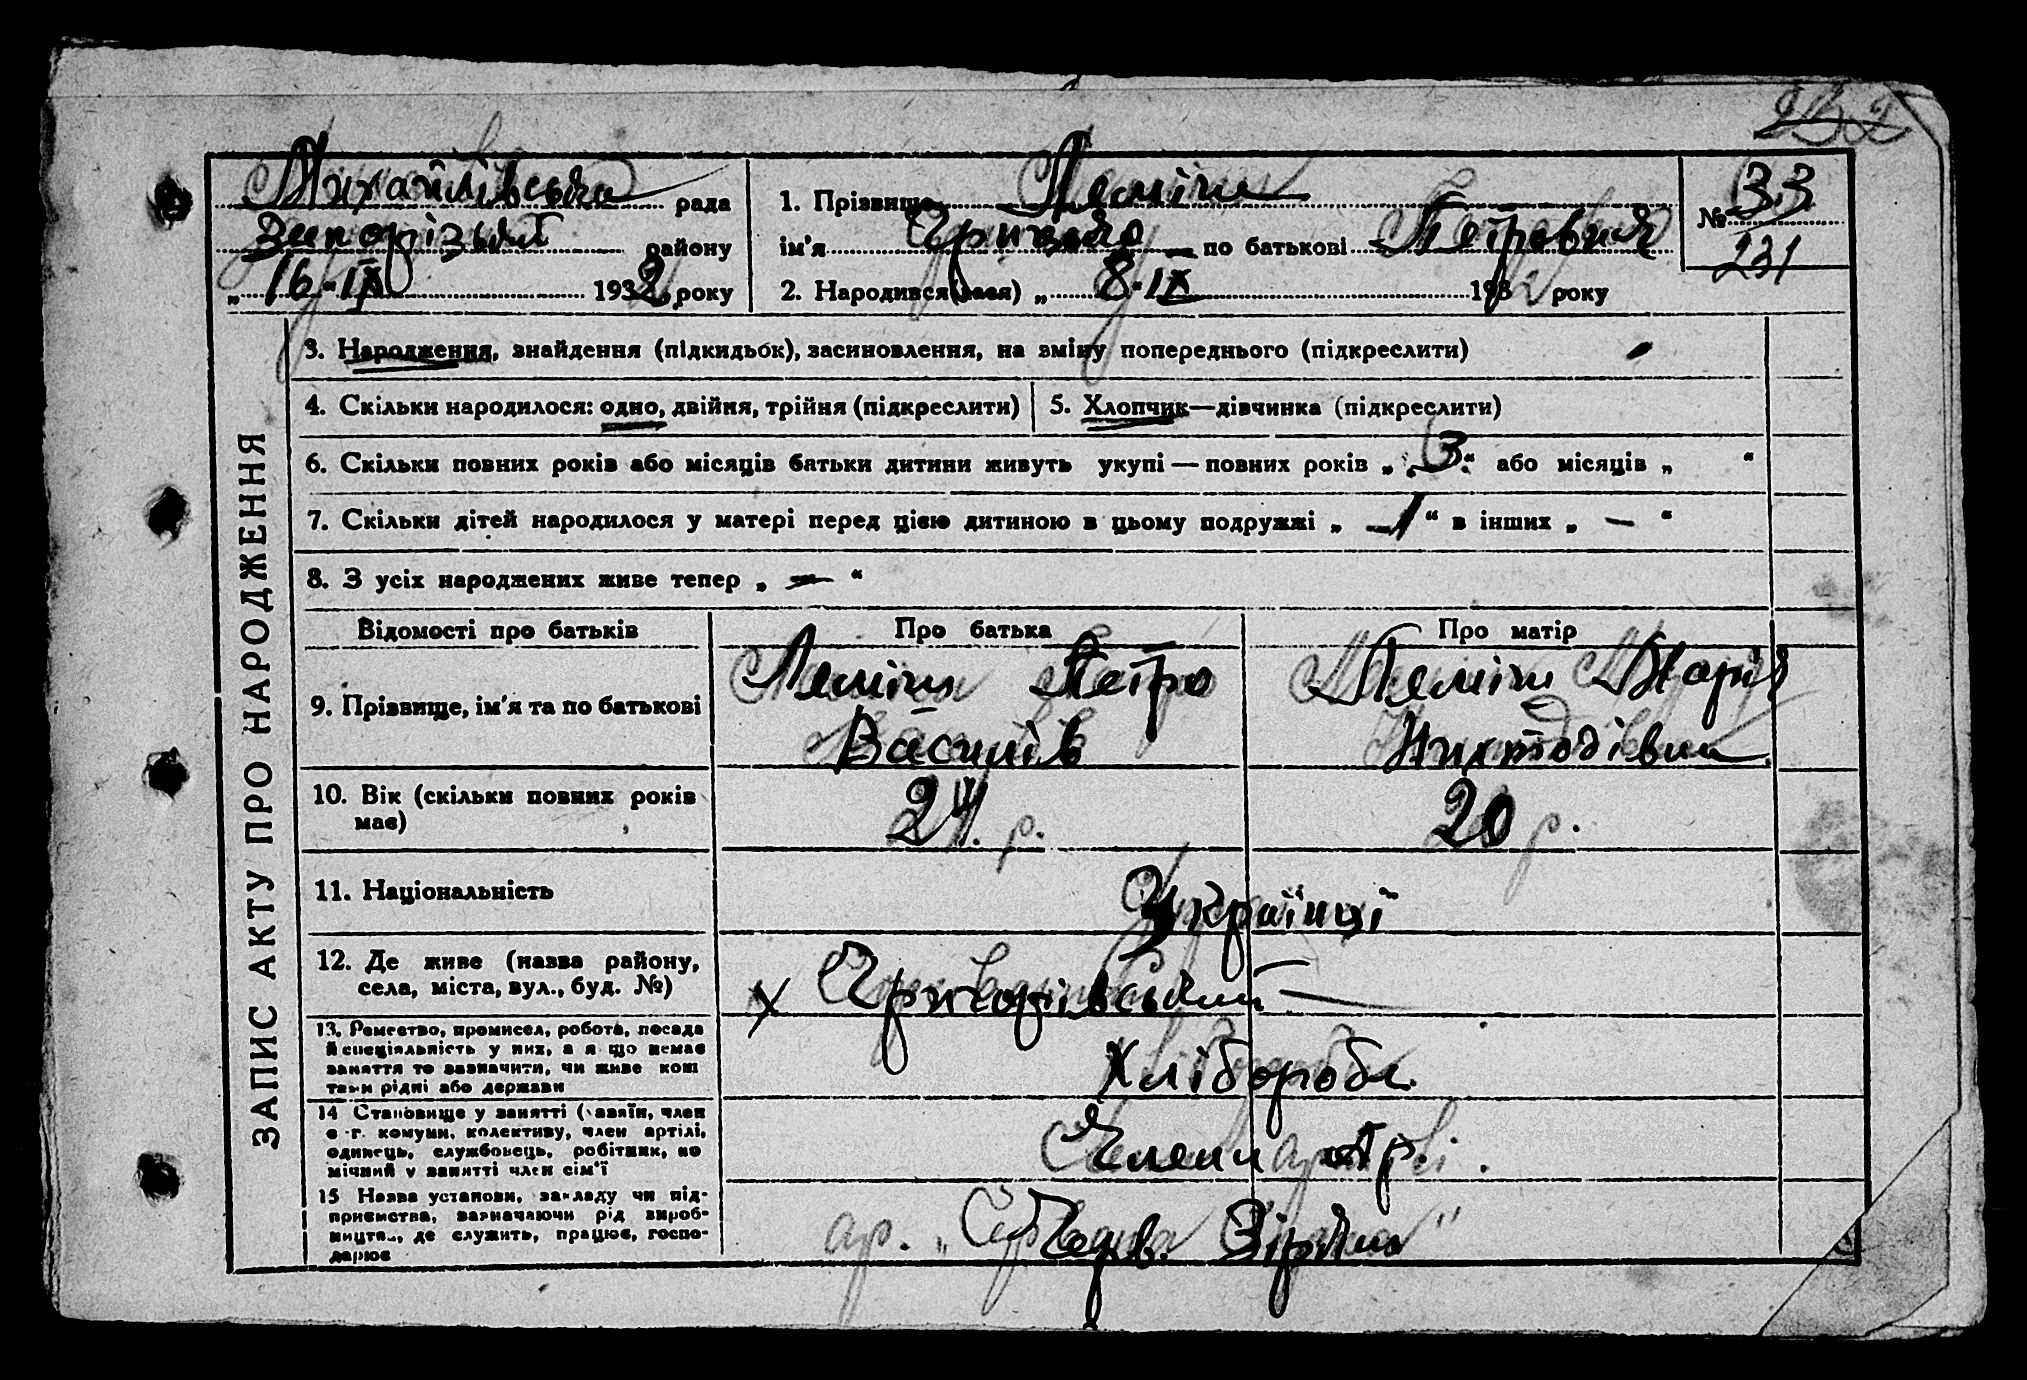 232
Михайлівська рада
Запорізьк. району
„ 16 " IX 1932 року
1. Прізвище Леміш
ім'я Грицько по батькові Петрович
2. Народився(лася) „ 8 " IX 1932 року
№ 33
231
ЗАПИС АКТУ ПРО НАРОДЖЕННЯ
3. Народження, знайдення (підкидьок), засиновлення, на зміну попереднього (підкреслити)
4. Скільки народилося: одно, двійня, трійня (підкреслити)
5. Хлопчик—дівчинка (підкреслити)
6. Скільки повних років або місяців батьки дитини живуть укупі — повних років „ 3 " або місяців „ "
7. Скільки дітей народилося у матері перед цією дитиною в цьому подружжі „ 1 " в інших „ — "
8. З усіх народжених живе тепер „ — "
Відомості про батьків
Про батька
Про матір
9. Прізвище, ім'я та по батькові
Леміш Петро
Василів
Леміш Марія
10. Вік (скільки повних років
має)
24 р.
20 р.
11. Національність
Українці
12. Де живе (назва району,
села, міста, вул., буд. №)
х Григорівський
13. Ремество, промисел, робота, посада
й спеціяльність у них, а якщо немає
заняття то зазначити, чи живе кош
тами рідні або держави
Хлібороби.
14 Становище у занятті (хазяїн, член
с.-г. комуни, колективу, член артілі,
одинець, службовець, робітник, по
мічний у занятті член сім'ї
Члени ар.
15 Назва установи, закладу чи під-
приємства, зазначаючи рід вироб-
ництва, де служить, працює, госпо-
дарює
ар. „ Черв. Зірка "